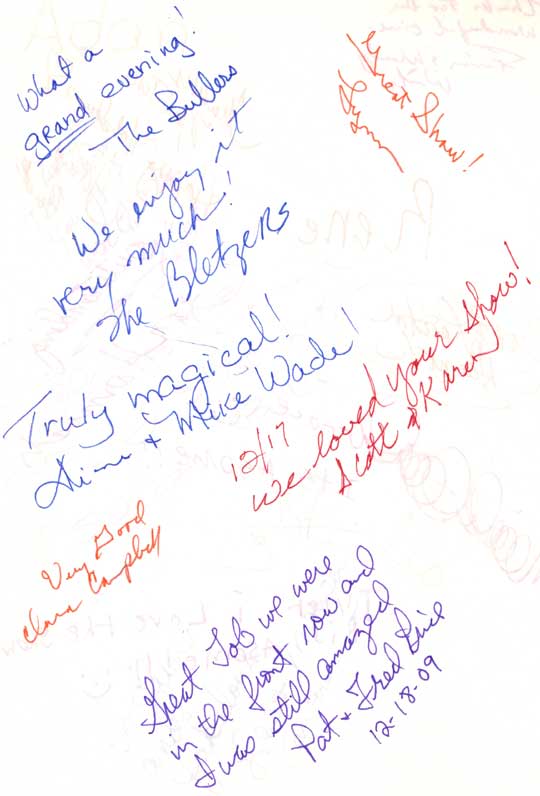 What a
grand evening!
The Bullers
Great Show!
We enjoy it
very much!
The Bletzers
Truly magical!
& Mike Wade!
12/17
We loved your Show!
Scott & Karen
Very Good
Clara Campbell
Great Job we were
in the front row and
I was still amazed
Pat & Fred
12-18-09